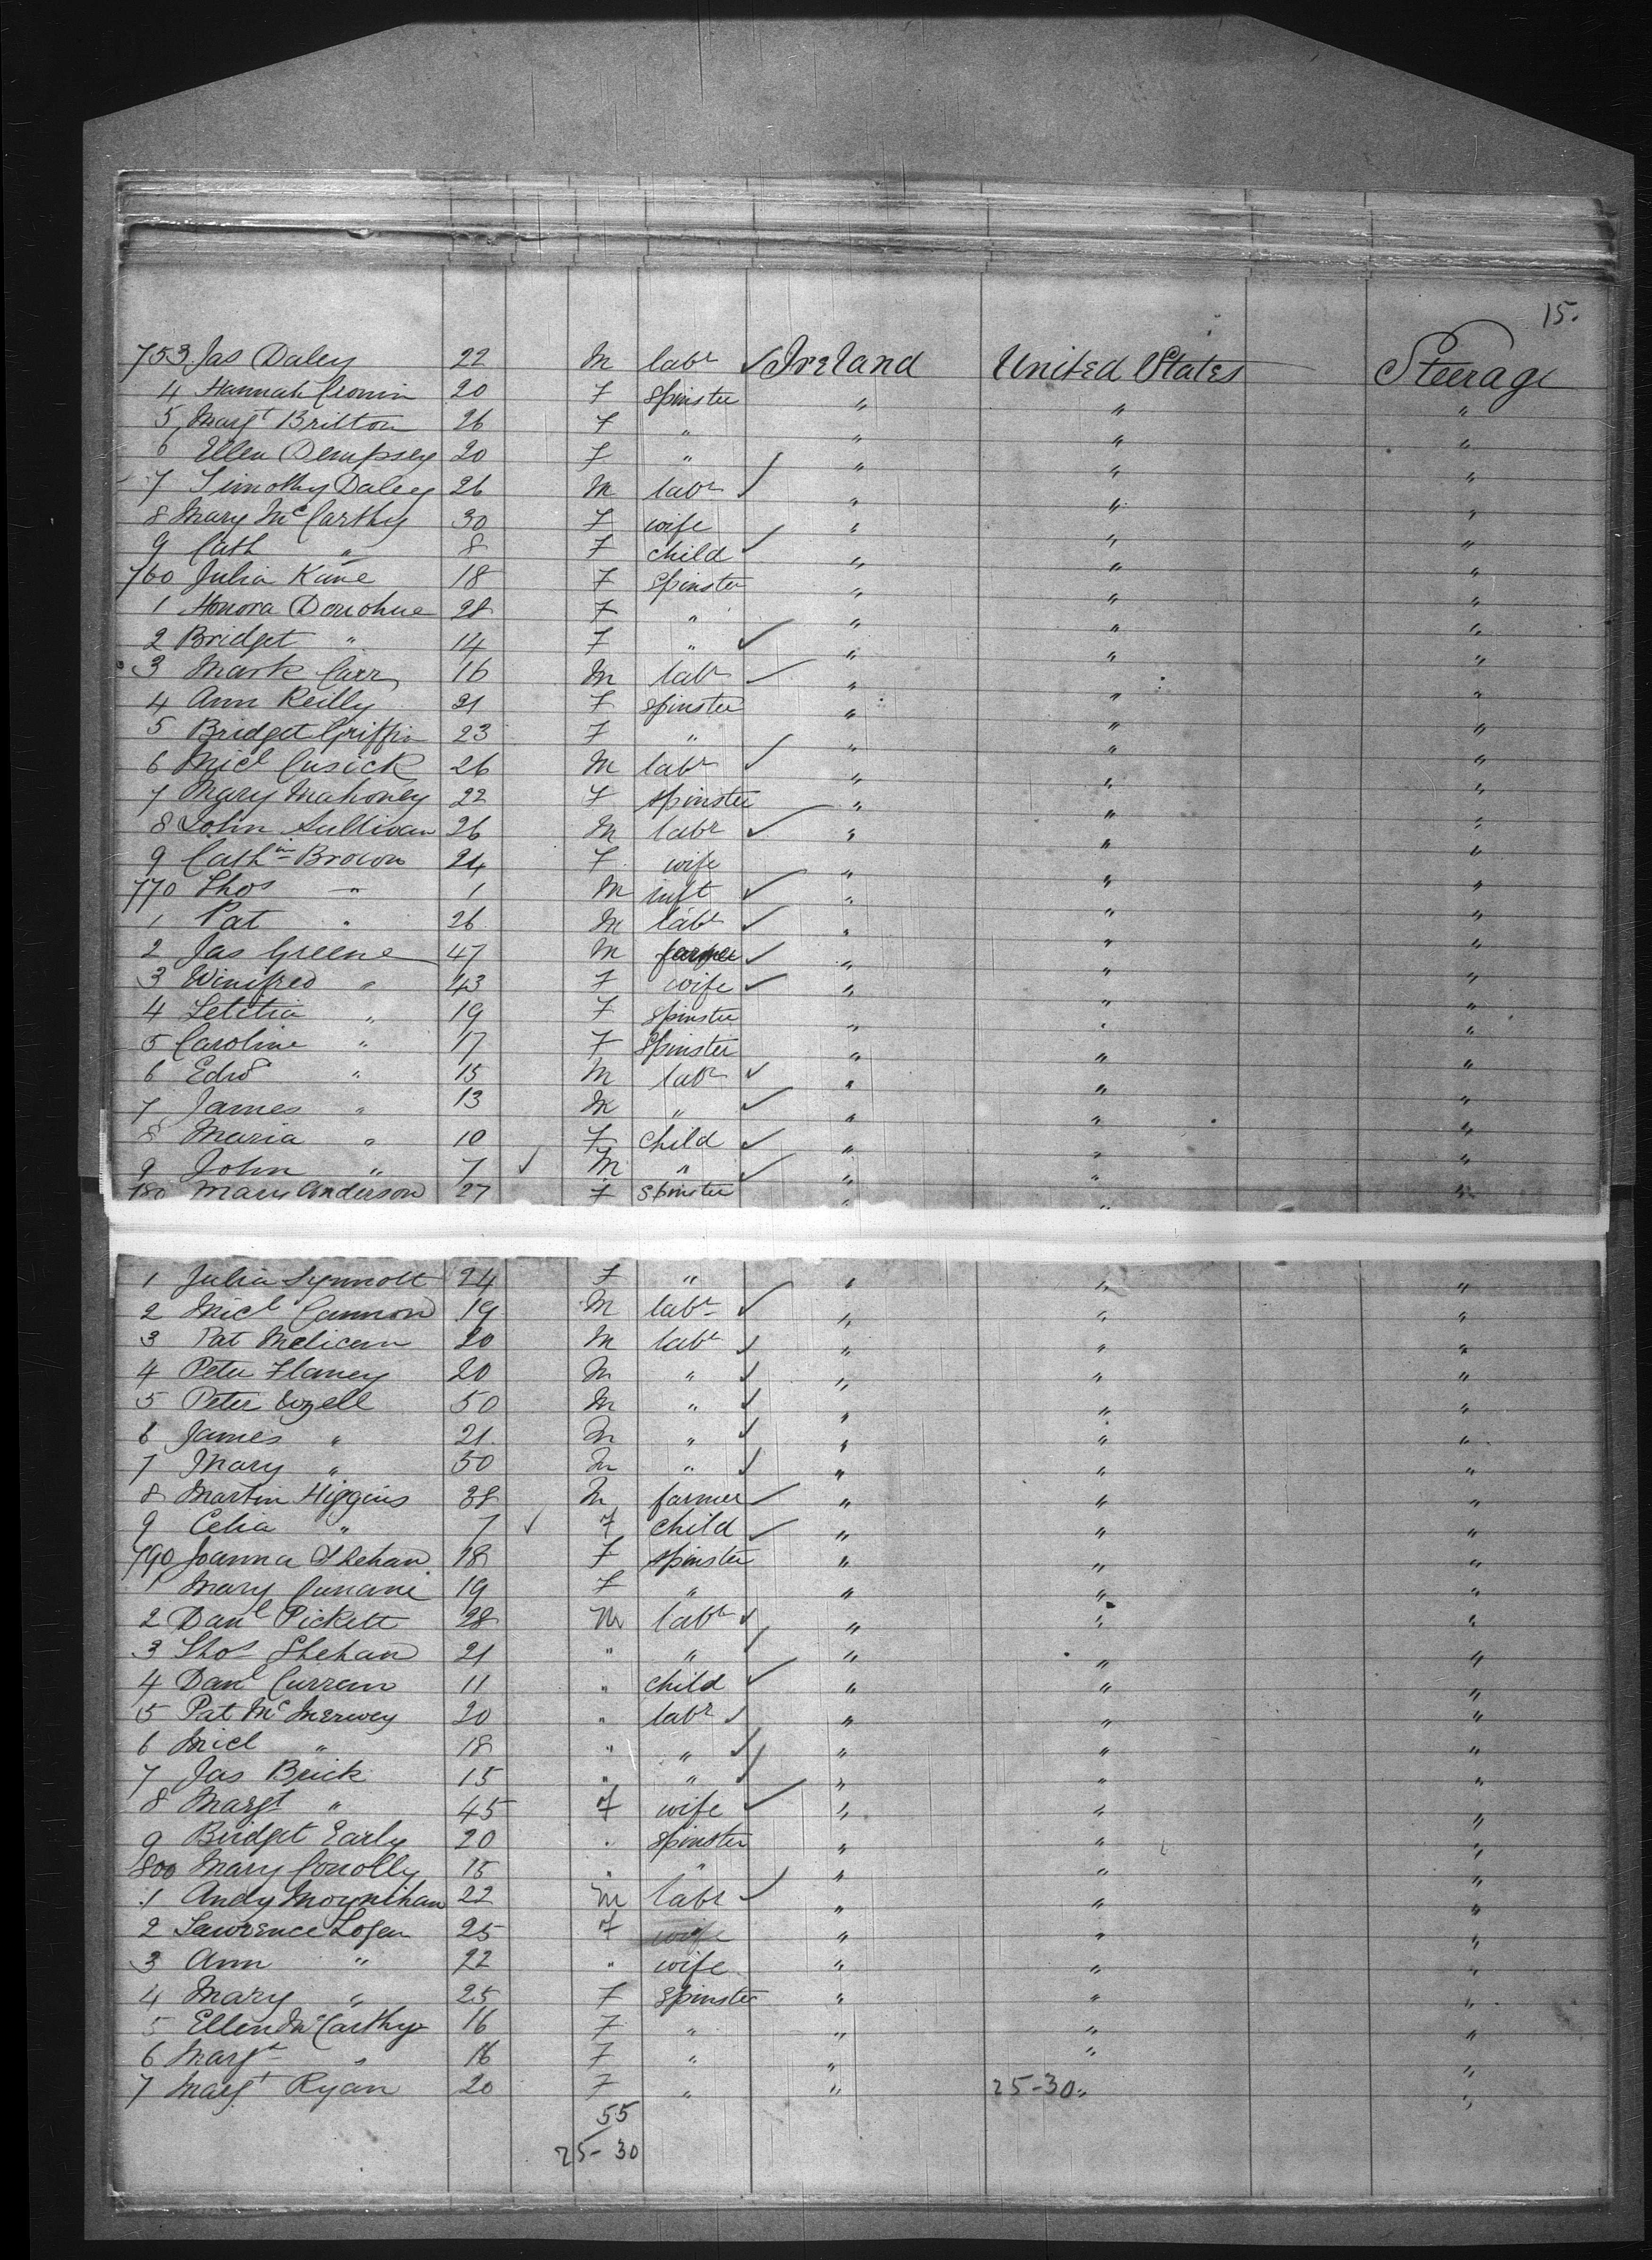 15.
753 Jas Daley 22 M labr ✓ Ireland United States Steerage
4 Hannah Cronin 20 F Spinster " " "
5 Margt Britton 26 F " " " "
6 Ellen Dempsey 20 F " " " "
7 Timothy Daley 26 M labr ✓ " " "
8 Mary McCarthy 30 F wife " " "
9 Cath " 8 F child ✓ " " "
760 Julia Kane 18 F Spinster " " "
1 Honora Donohue 28 F " " " "
2 Bridget " 14 F " ✓ " " "
3 Mark Carr 16 M labr ✓ " " "
4 Ann Reilly 21 F spinster " " "
5 Bridget Griffin 23 F " " " "
6 Micl Cusick 26 M labr ✓ " " "
7 Mary Mahoney 22 F spinster " " "
8 John Sullivan 26 M labr ✓ " " "
9 Cathin Brown 24 F wife " " "
770 Thos " 1 M inft ✓ " " "
1 Pat " 26 M labr ✓ " " "
2 Jas Greene 47 M farmer ✓ " " "
3 Winifred " 43 F wife ✓ " " "
4 Letitia " 19 F spinster " " "
5 Caroline " 17 F Spinster " " "
6 Edwd " 15 M labr ✓ " " "
7 James " 13 M " ✓ " " "
8 Maria " 10 F child ✓ " " "
9 John " 7 ✓ M " ✓ " " "
780 Mary Anderson 27 F Spinster " " "
1 Julia Synnott 24 F " " " "
2 Micl Cannon 19 M labr ✓ " " "
3 Pat Melican 20 M labr ✓ " " "
4 Peter Flaney 20 M " ✓ " " "
5 Peter 50 M " ✓ " " "
6 James " 21 M " ✓ " " "
7 Mary " 50 M " ✓ " " "
8 Martin Higgins 38 M farmer ✓ " " "
9 Celia " 7 ✓ F child ✓ " " "
790 Joanna Shehan 18 F spinster " " "
1 Mary Cunane 19 F " " " "
2 Danl Pickett 28 M labr ✓ " " "
3 Thos Shehan 21 " " ✓ " " "
4 Danl Curran 11 " child ✓ " " "
5 Pat 20 " labr ✓ " " "
6 Micl " 18 " " ✓ " " "
7 Jas Brick 15 " " ✓ " " "
8 Margt " 45 F wife ✓ " " "
9 Bridget Early 20 " spinster " " "
800 Mary Conolly 15 " " " " "
1 Andy Moynihan 22 M labr ✓ " " "
2 Lawrence Logan 25 F wife " " "
3 Ann " 22 " wife " " "
4 Mary " 25 F Spinster " " "
5 Ellen McCarthy 16 F " " " "
6 Margt " 16 F " " " "
7 Margt Ryan 20 F " " 25-30 " "
55
25-30